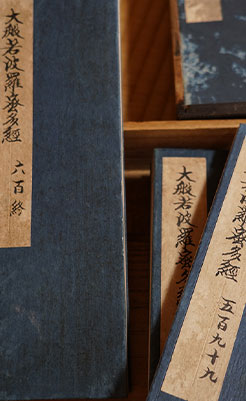 大般若波羅蜜多經 六百終
大般若波羅蜜多
羅蜜多經 五百九十九